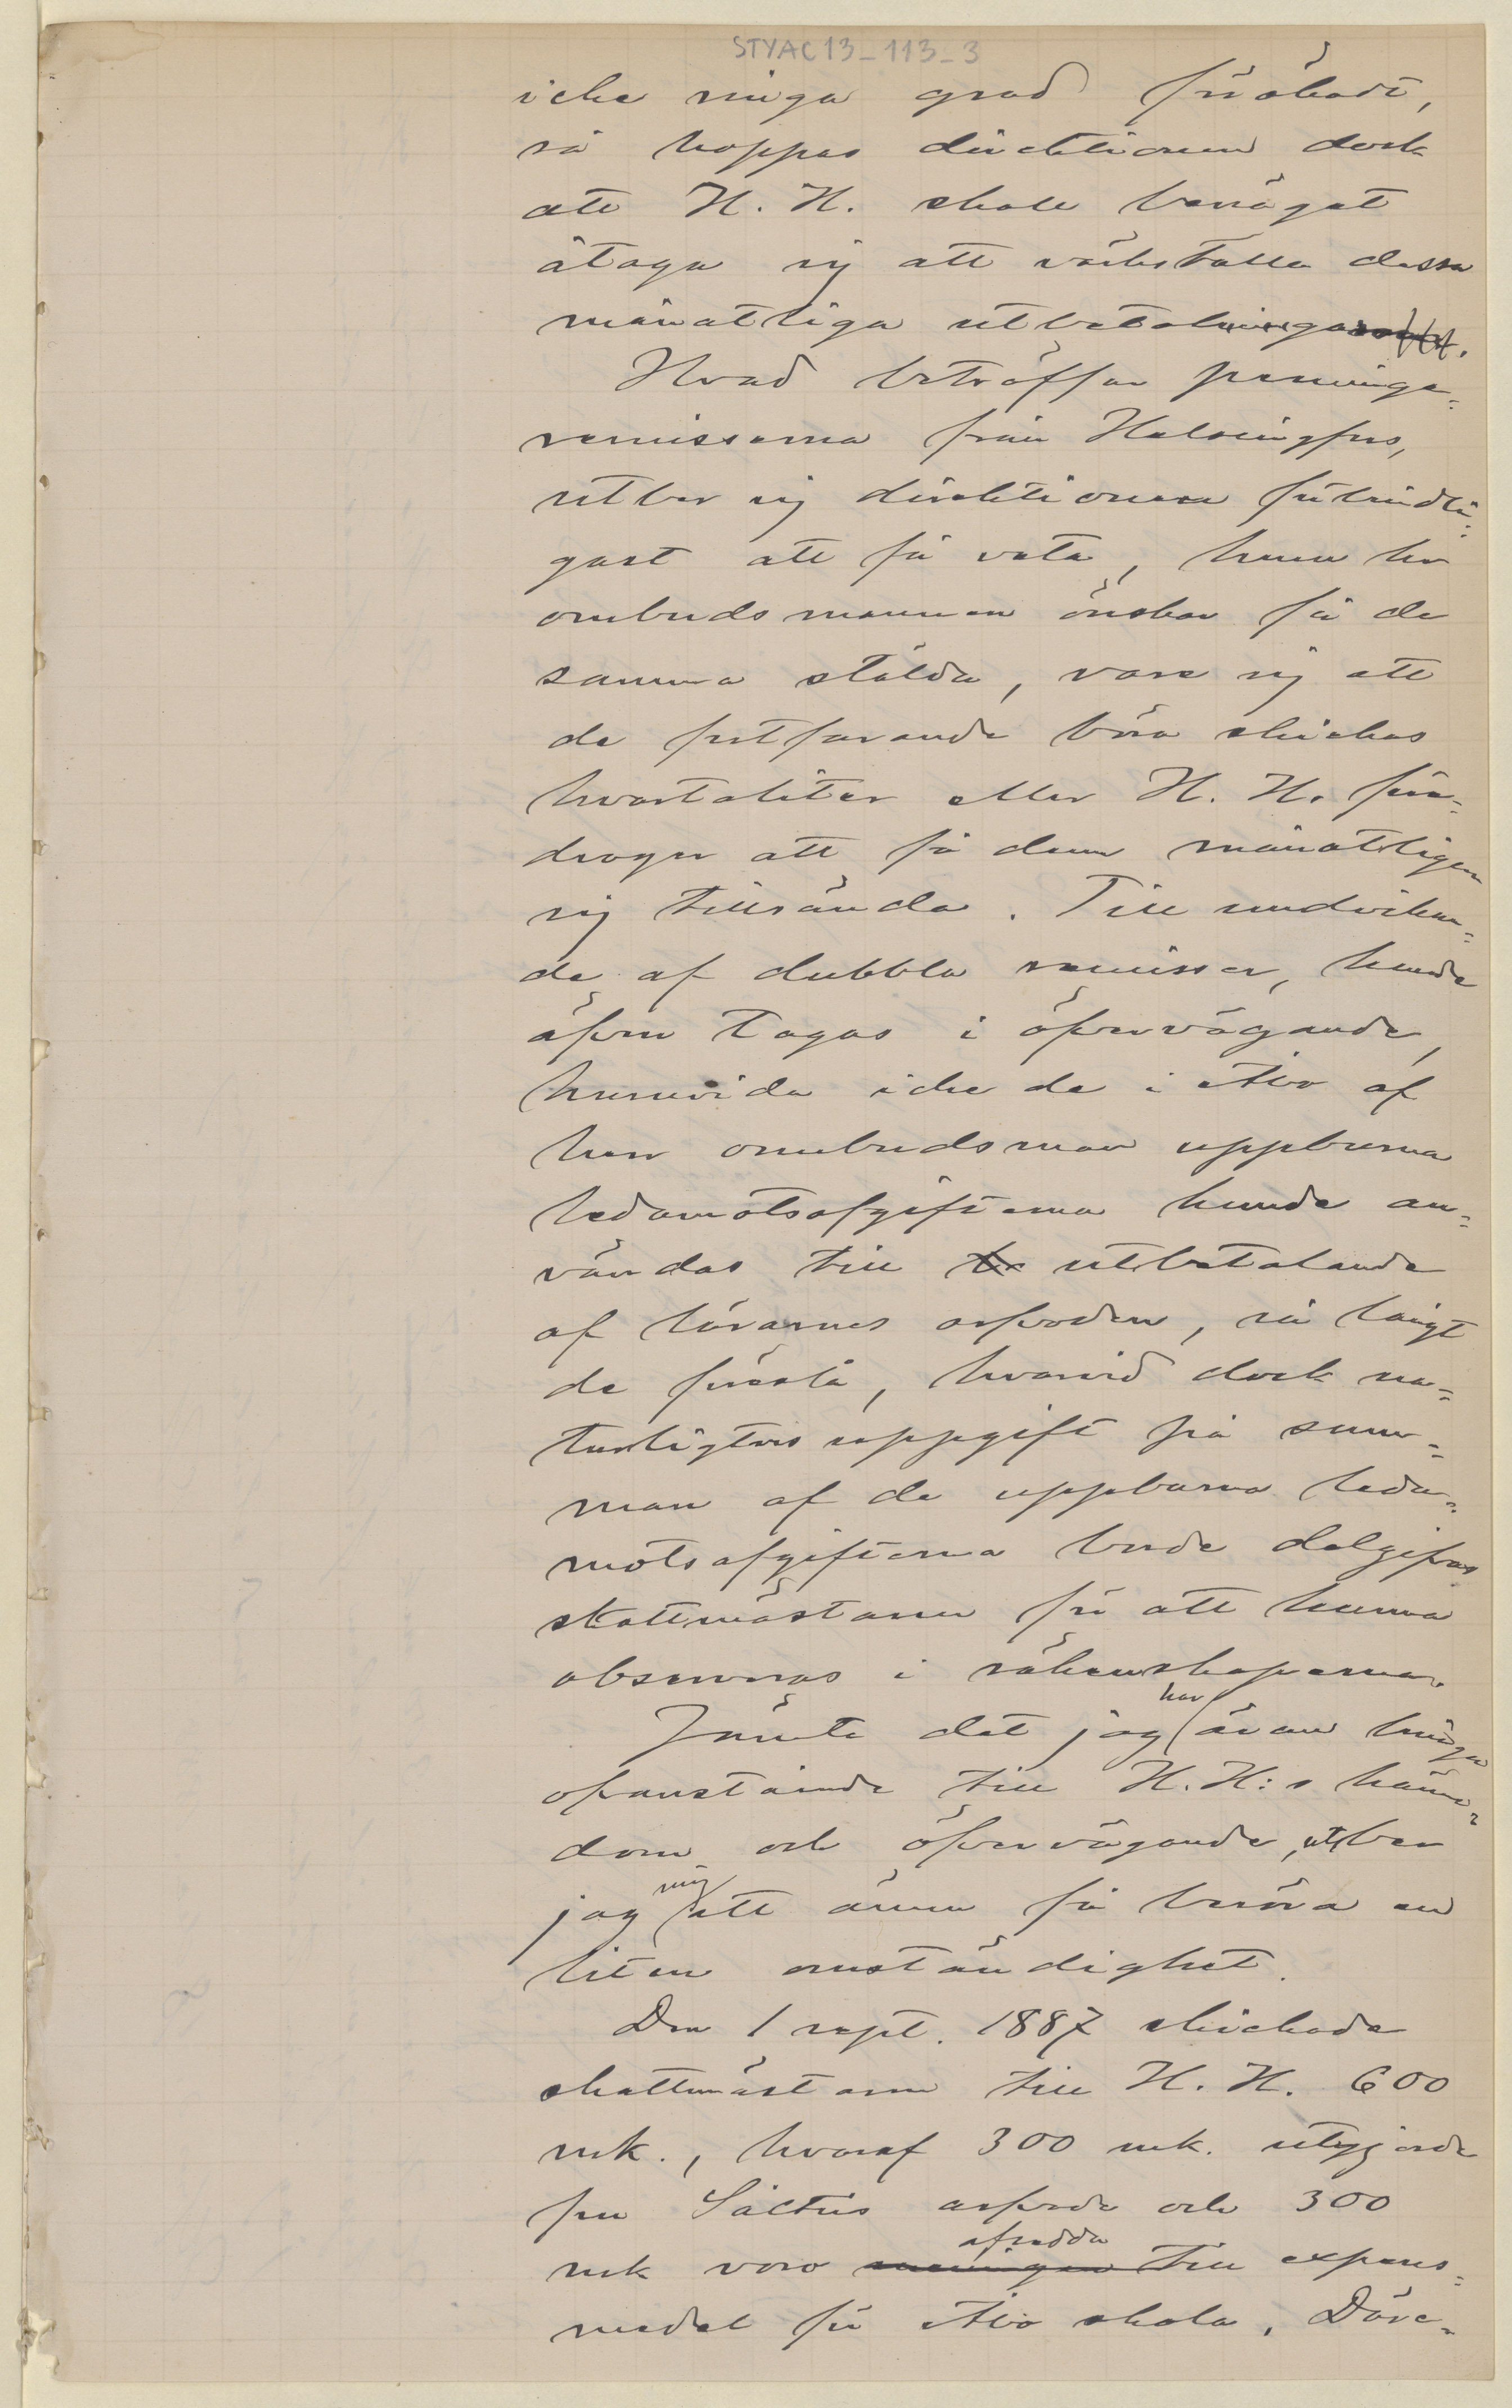 STYAC13_113_3
icke ringa grad förökadt,
så hoppas direktionen dock
att H. H. skall benäget
åtaga sig att värkställa dessa
månatliga utbetalningar.
Hvad beträffar peninge-
remisserna från Helsingfors,
utber sig direktionen förbindli-
gast att få veta, huru hr
ombudsmannen önskar få de
samma stälda, vare sig att
de fortfarande böra skickas
kvartaliter eller H. H. före-
drager att få dem månatligen
sig tillsända. Till undvikan-
de af dubbla remisser, kunde
äfven tagas i öfvervägande,
huruvida icke de i Åbo af
herr ombudsman uppburna
ledamotsafgifterna kunde an-
vändas till utbetalande
af lärarnes arfvoden, så långt
de förslå, hvarvid dock na-
turligtvis uppgift på sum-
man af de uppburna leda-
motsafgifterna borde delgifvas
skattmästaren för att kunna
observeras i räkenskaperna.
Jämte det jag har äran bringa
ofvanstående till H. H:s känne-
dom och öfvervägande, utber
jag mig att ännu få beröra en
liten omständighet.
Den 1 sept. 1887 skickade
skattmästaren till H. H. 600
mk., hvaraf 300 mk. utgjorde
fru Sältins arfvode och 300
mk voro meningen afsedda till expens-
medel för Åbo skola. Däre-